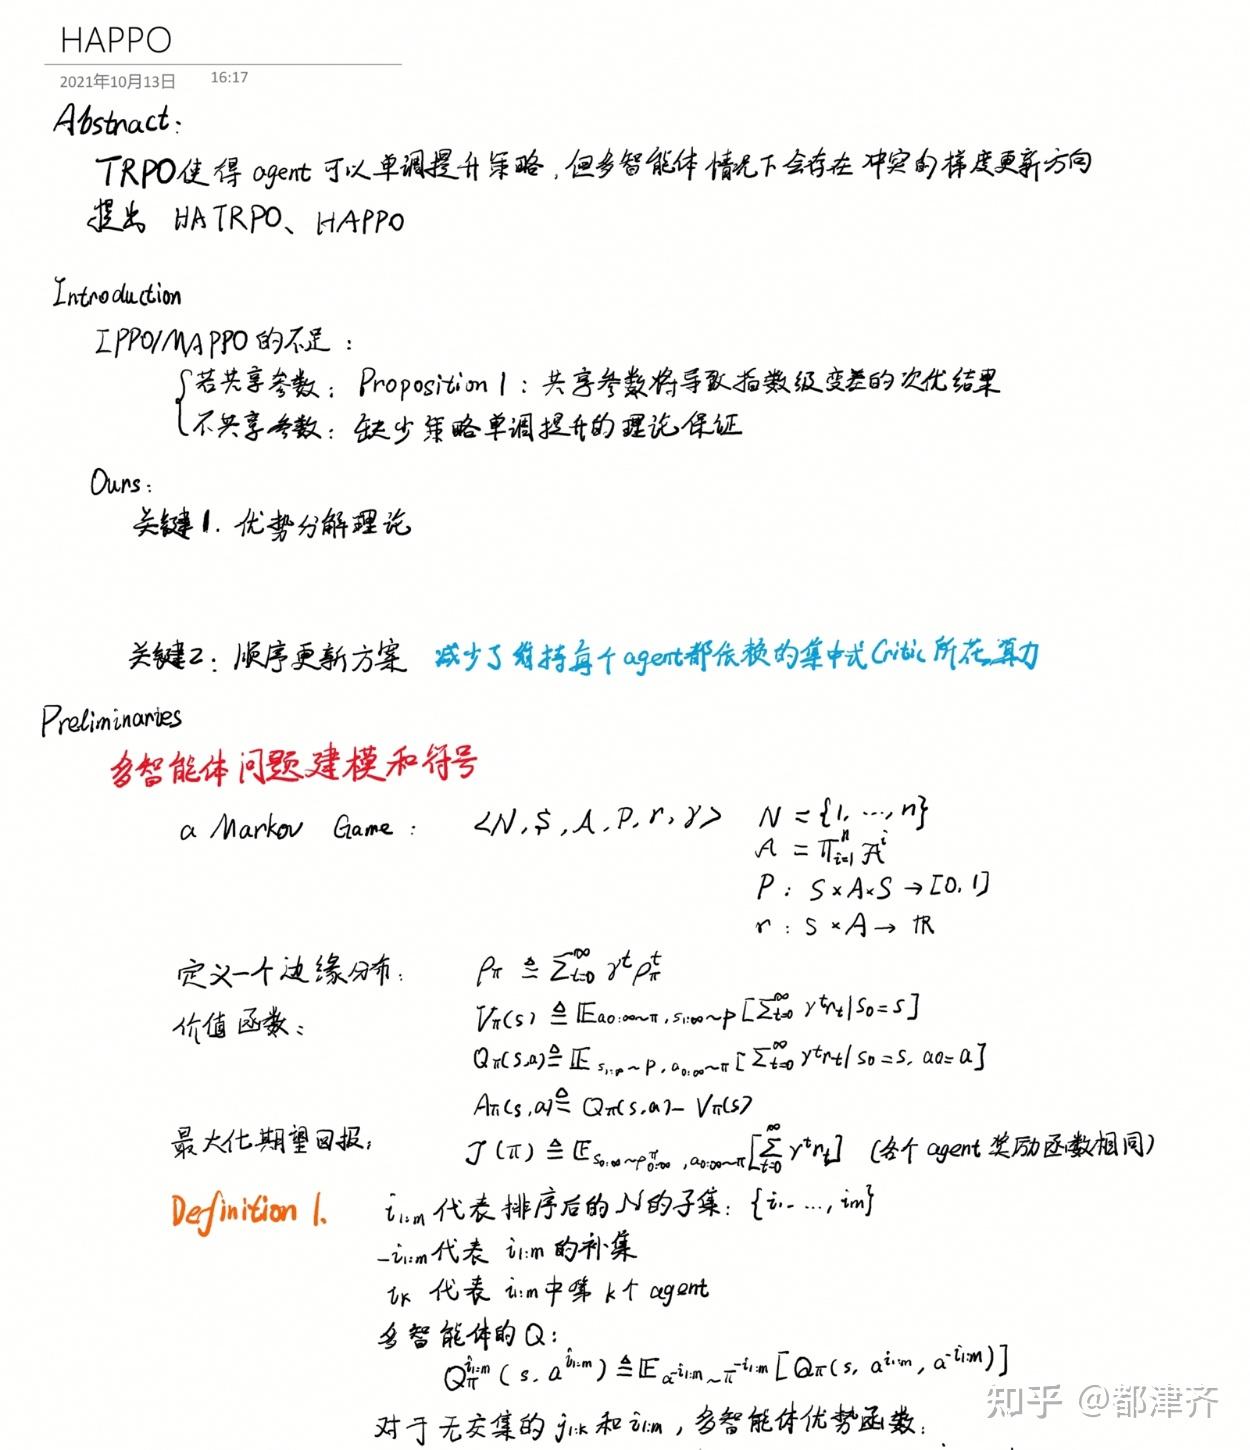 HAPPO
2021年10月13日 16:17
Abstract:
TRPO使得 agent 可以单调提升策略,但多智能体情况下会存在冲突的梯度更新方向
提出 HATRPO、HAPPO
Introduction
IPPO/MAPPO的不足:
若共享参数: Proposition 1: 共享参数将导致指数级变差的次优结果
不共享参数: 缺少策略单调提升的理论保证
Ours:
关键1. 优势分解理论
关键2: 顺序更新方案 减少了维持每个agent都依赖的集中式Critic所花算力
Preliminaries
多智能体问题建模和符号
a Markov Game: <N, $, A, P, r, γ> N = {1, ..., n}
A = ∏_{i=1}^{n} A^i
P: S×A×S → [0,1]
r: S×A → ℝ
定义一个边缘分布: ρ_π ≜ ∑_{t=0}^{∞} γ^t ρ_π^t
价值函数: V_π(s) ≜ 𝔼_{a_{0:∞}~π, s_{1:∞}~P} [∑_{t=0}^{∞} γ^t r_t | s_0=s]
Q_π(s,a) ≜ 𝔼_{s_{1:∞}~P, a_{0:∞}~π} [∑_{t=0}^{∞} γ^t r_t | s_0=s, a_0=a]
A_π(s,a) ≜ Q_π(s,a) - V_π(s)
最大化期望回报: J(π) ≜ 𝔼_{s_{0:∞}~ρ_{0:∞}^π, a_{0:∞}~π} [∑_{t=0}^{∞} γ^t r_t] (各个agent奖励函数相同)
Definition 1. i_{1:m} 代表排序后的 N 的子集: {i_1, ..., i_m}
-i_{1:m} 代表 i_{1:m} 的补集
i_k 代表 i_{1:m} 中第 k 个 agent
多智能体的Q:
Q_π^{i_{1:m}} (s, a^{i_{1:m}}) ≜ 𝔼_{a^{-i_{1:m}}~π^{-i_{1:m}}} [Q_π(s, a^{i_{1:m}}, a^{-i_{1:m}})]
对于无交集的 j_{1:k} 和 i_{1:m}, 多智能体优势函数:
知乎 @都津齐